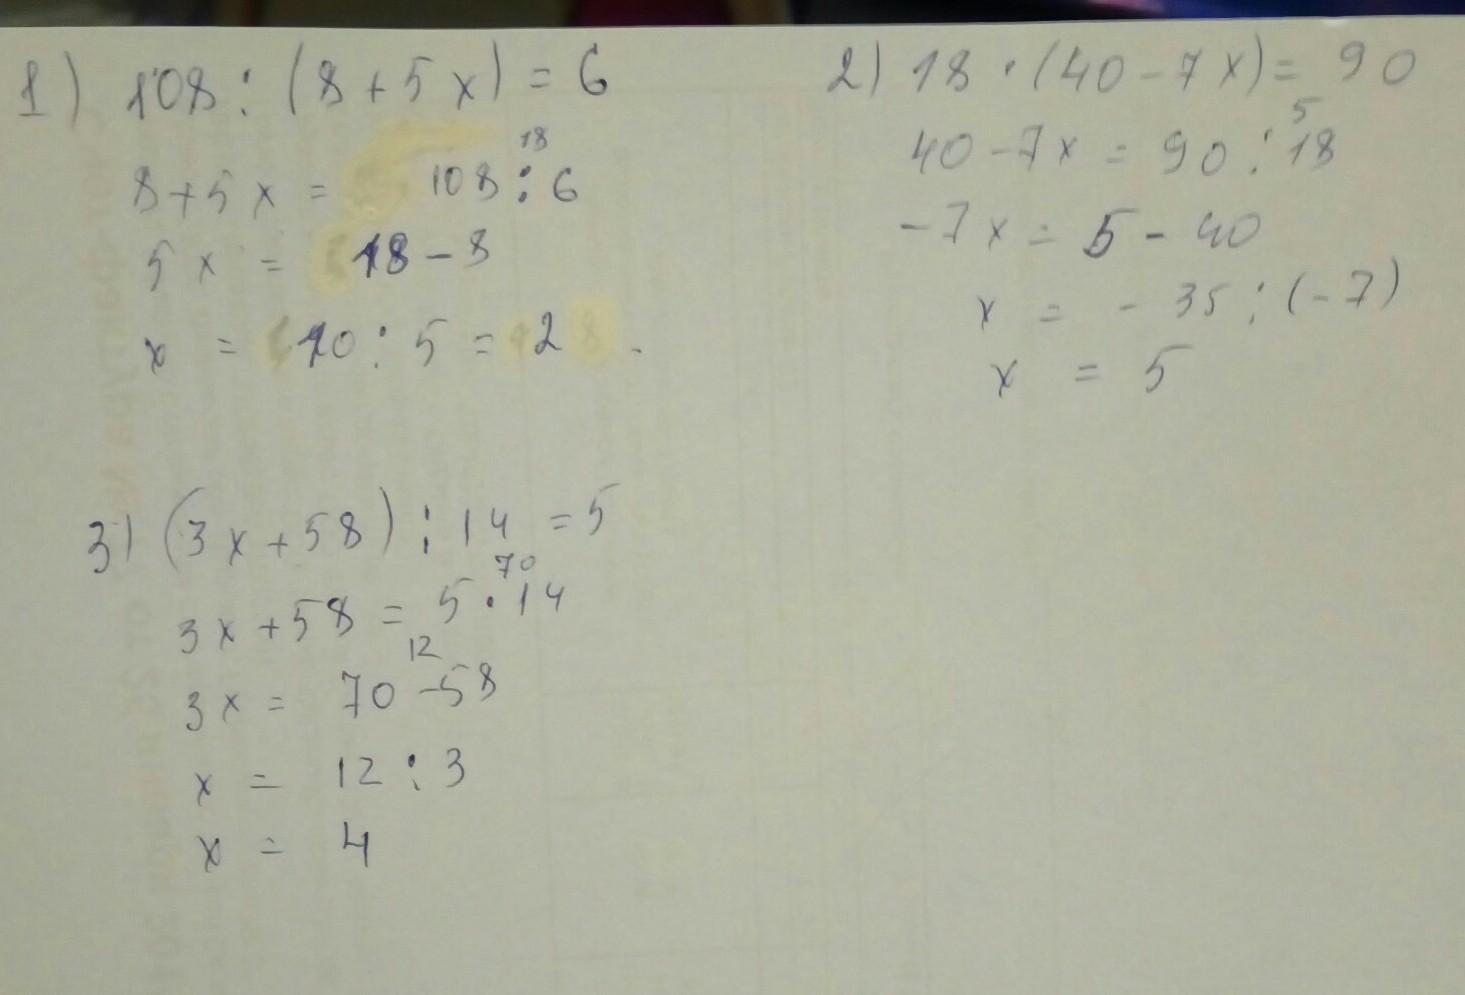 1) 108 : (8 + 5 x) = 6
18
8 + 5 x = 108 : 6
5 x = 18 - 8
x = 10 : 5 = 2
2) 18 · (40 - 7 x) = 90
5
40 - 7 x = 90 : 18
- 7 x = 5 - 40
x = - 35 : (- 7)
x = 5
3) (3 x + 58) : 14 = 5
70
3 x + 58 = 5 · 14
12
3 x = 70 - 58
x = 12 : 3
x = 4